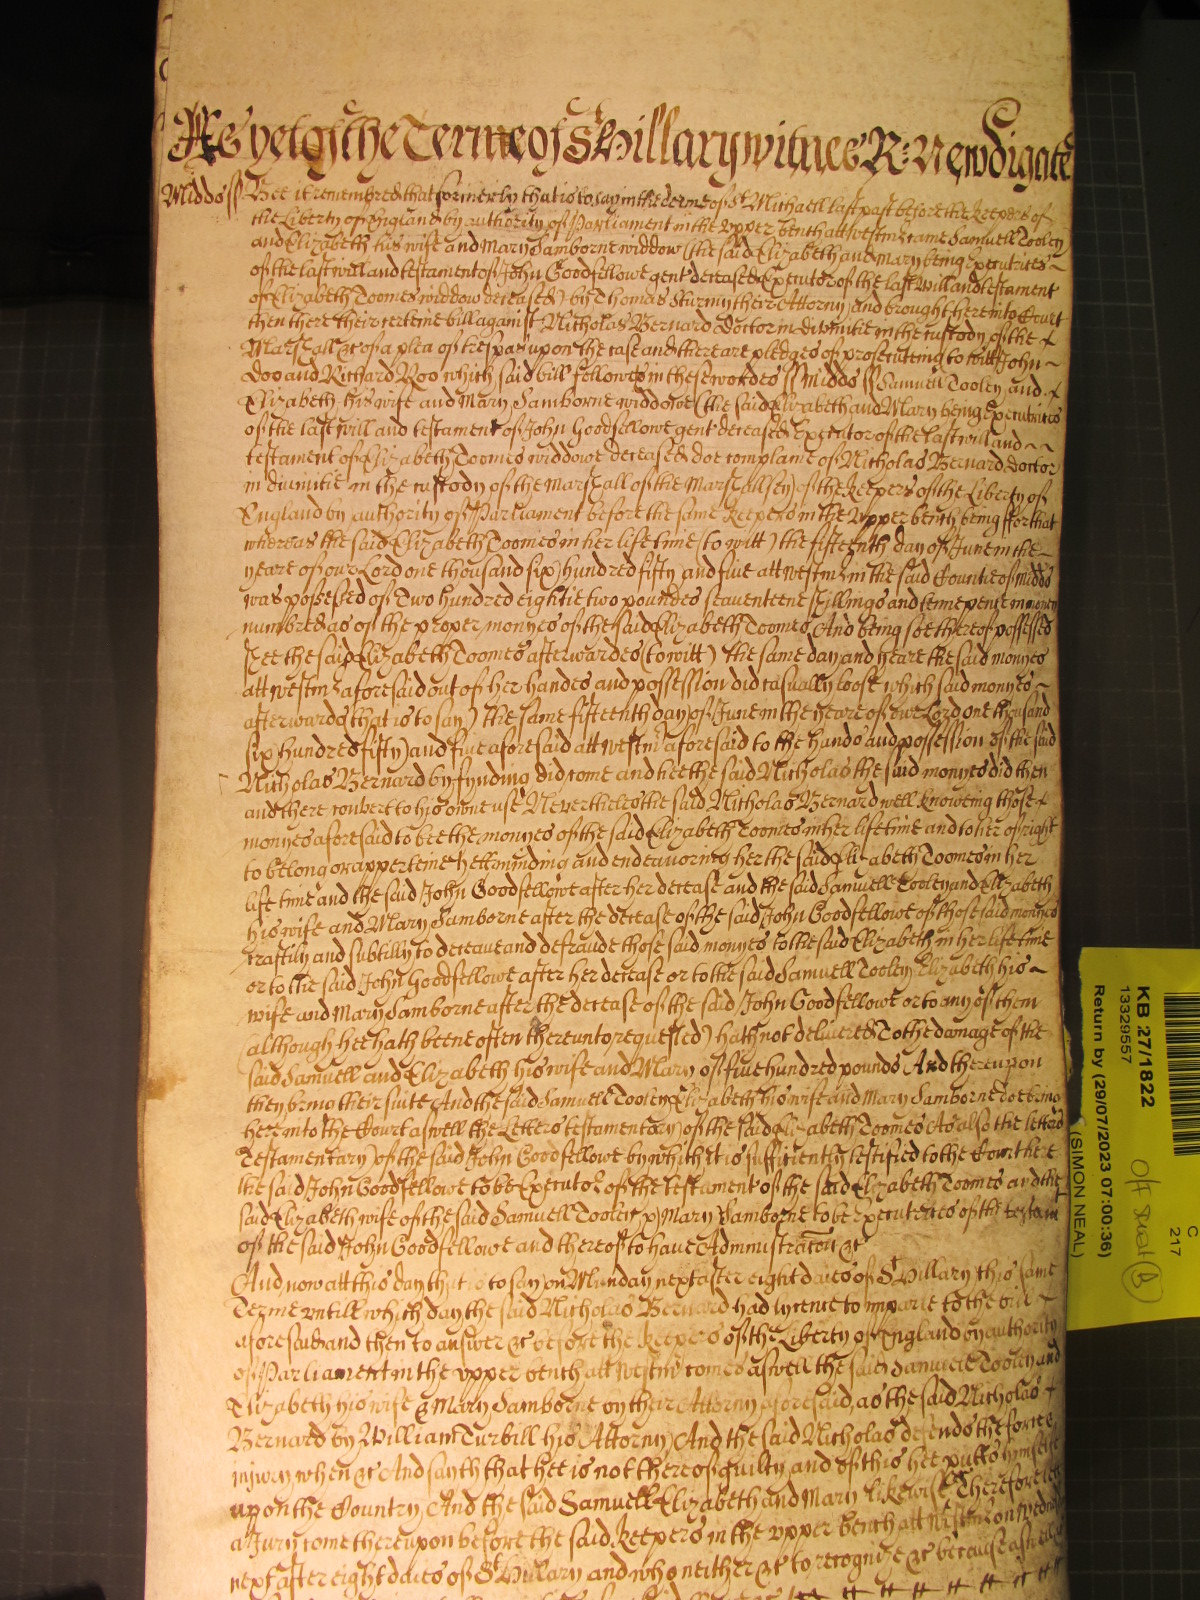 As yet of the Terme of St Hillary witnes R: Newdigate
Midds ss Bee it remembred that formerly that is to say in the terme of St Michaell last past before the keepers of
the Liberty of England by authority of Parliament in the upper bench att westmr came Samuell Tooley
and Elizabeth his wife and Mary Samborne widdow (the said Elizabeth and Mary being Executrices
of the last will and testament of John Goodfellowe gent deceased Executor of the last will and testament
of Elizabeth Toomes widdow deceased) by Thomas Sturmy their Attorny and brought here into Court
then there their certeine bill against Nicholas Bernard Doctor in divinitie in the custody of the
Marshall &c of a plea of trespas upon the case and there are pledges of prosecuteing to witt John
Doo and Richard Roo which said bill followes in these wordes ss Midds ss Samuell Tooley and
Elizabeth his wife and Mary Samborne widdowe (the said Elizabeth and Mary being Executrices
of the last will and testament of John Goodfellowe gent deceased Executor of the last will and
testament of Elizabeth Toomes widdowe deceased doe complaine of Nicholas Bernard doctor
in divinitie in the custody of the Marshall of the Marshallsey of the keepers of the Liberty of
England by authority of Parliament before the same keepers in the Upper bench being ffor that
whereas the said Elizabeth Toomes in her life time (to witt) the fifteenth day of June in the
yeare of our Lord one thousand six hundred fifty and five att westmr in the said Countie of Midds
was possessed of Two hundred eightie two poundes seaventeene shillings and tenne pence in money
numbred as of the proper monyes of the said Elizabeth Toomes And being soe thereof possessed
shee the said Elizabeth Toomes afterwardes (to witt) the same day and yeare the said monyes
att westmr aforesaid out of her handes and possession did casually loose which said monyes
afterwards that is to say) the same fifteenth day of June in the yeare of our Lord one thousand
six hundred fifty and five aforesaid att westmr aforesaid to the hands and possession of the said
Nicholas Bernard by fynding did come and hee the said Nicholas the said monyes did then
and there convert to his owne use Neverthelesthe said Nicholas Bernard well knoweing those
monyes aforesaid to bee the monyes of the said Elizabeth Toomes in her life time and to her of right
to belong or apperteine yett minding and endeavoring her the said Elizabeth Toomes in her
life time and the said John Goodfellowe after her decease and the said Samuell Tooley and Elizabeth
his wife and Mary Samborne after the decease of the said John Goodfellowe of those said monyes
craftily and subtilly to deceave and defraude those said monyes to the said Elizabeth in her life time
or to the said John Goodfellowe after her decease or to the said Samuell Tooley Elizabeth his
wife and Mary Samborne after the decease of the said John Goodfellowe or to any of them
(although hee hath beene often thereunto requested) hath not delivered To the damage of the
said Samuell and Elizabeth his wife and Mary of five hundred pounds And thereupon
they bring their suite And the said Samuell Tooley Elizabeth his wife and Mary Samborne doe bring
here into the Court aswell the Letters testamentary of the said Elizabeth Toomes As also the letters
Testamentary of the said John Goodfellowe by which it is sufficiently testified to the Court here
the said John Goodfellowe to be Executor of the testament of the said Elizabeth Toomes and the
said Elizabeth wife of the said Samuell Tooley & Mary Samborne to be Executrices of the testam
of the said John Goodfellowe and thereof to have Administracon &c
And now att this day that is to say on Munday next after eight daies of St Hillary this same
Terme untill which day the said Nicholas Bernard had lycence to imparle to the bill
aforesaid and then to answer &c before the keepers of the Liberty of England by authority
of Parliament in the upper bench att westmr comes aswell the said Samuell Tooley and
Elizabeth his wife & Mary Samborne by their Attorny aforesaid, as the said Nicholas
Bernard by William Turbill his Attorny And the said Nicholas defends the force
injury when &c And sayth that hee is not thereof guilty and of this hee putts himselfe
upon the Country And the said Samuell Elizabeth and Mary likewise Therefore lett
a Jury come thereupon before the said keepers in the upper bench att westmr on Wed
next after eight daies of St Hillary and who neither &c to recognize &c because aswell
KB 27/1822
13329557
Return by (29/07/2023 07:00:36)
(SIMON NEAL)
C
217